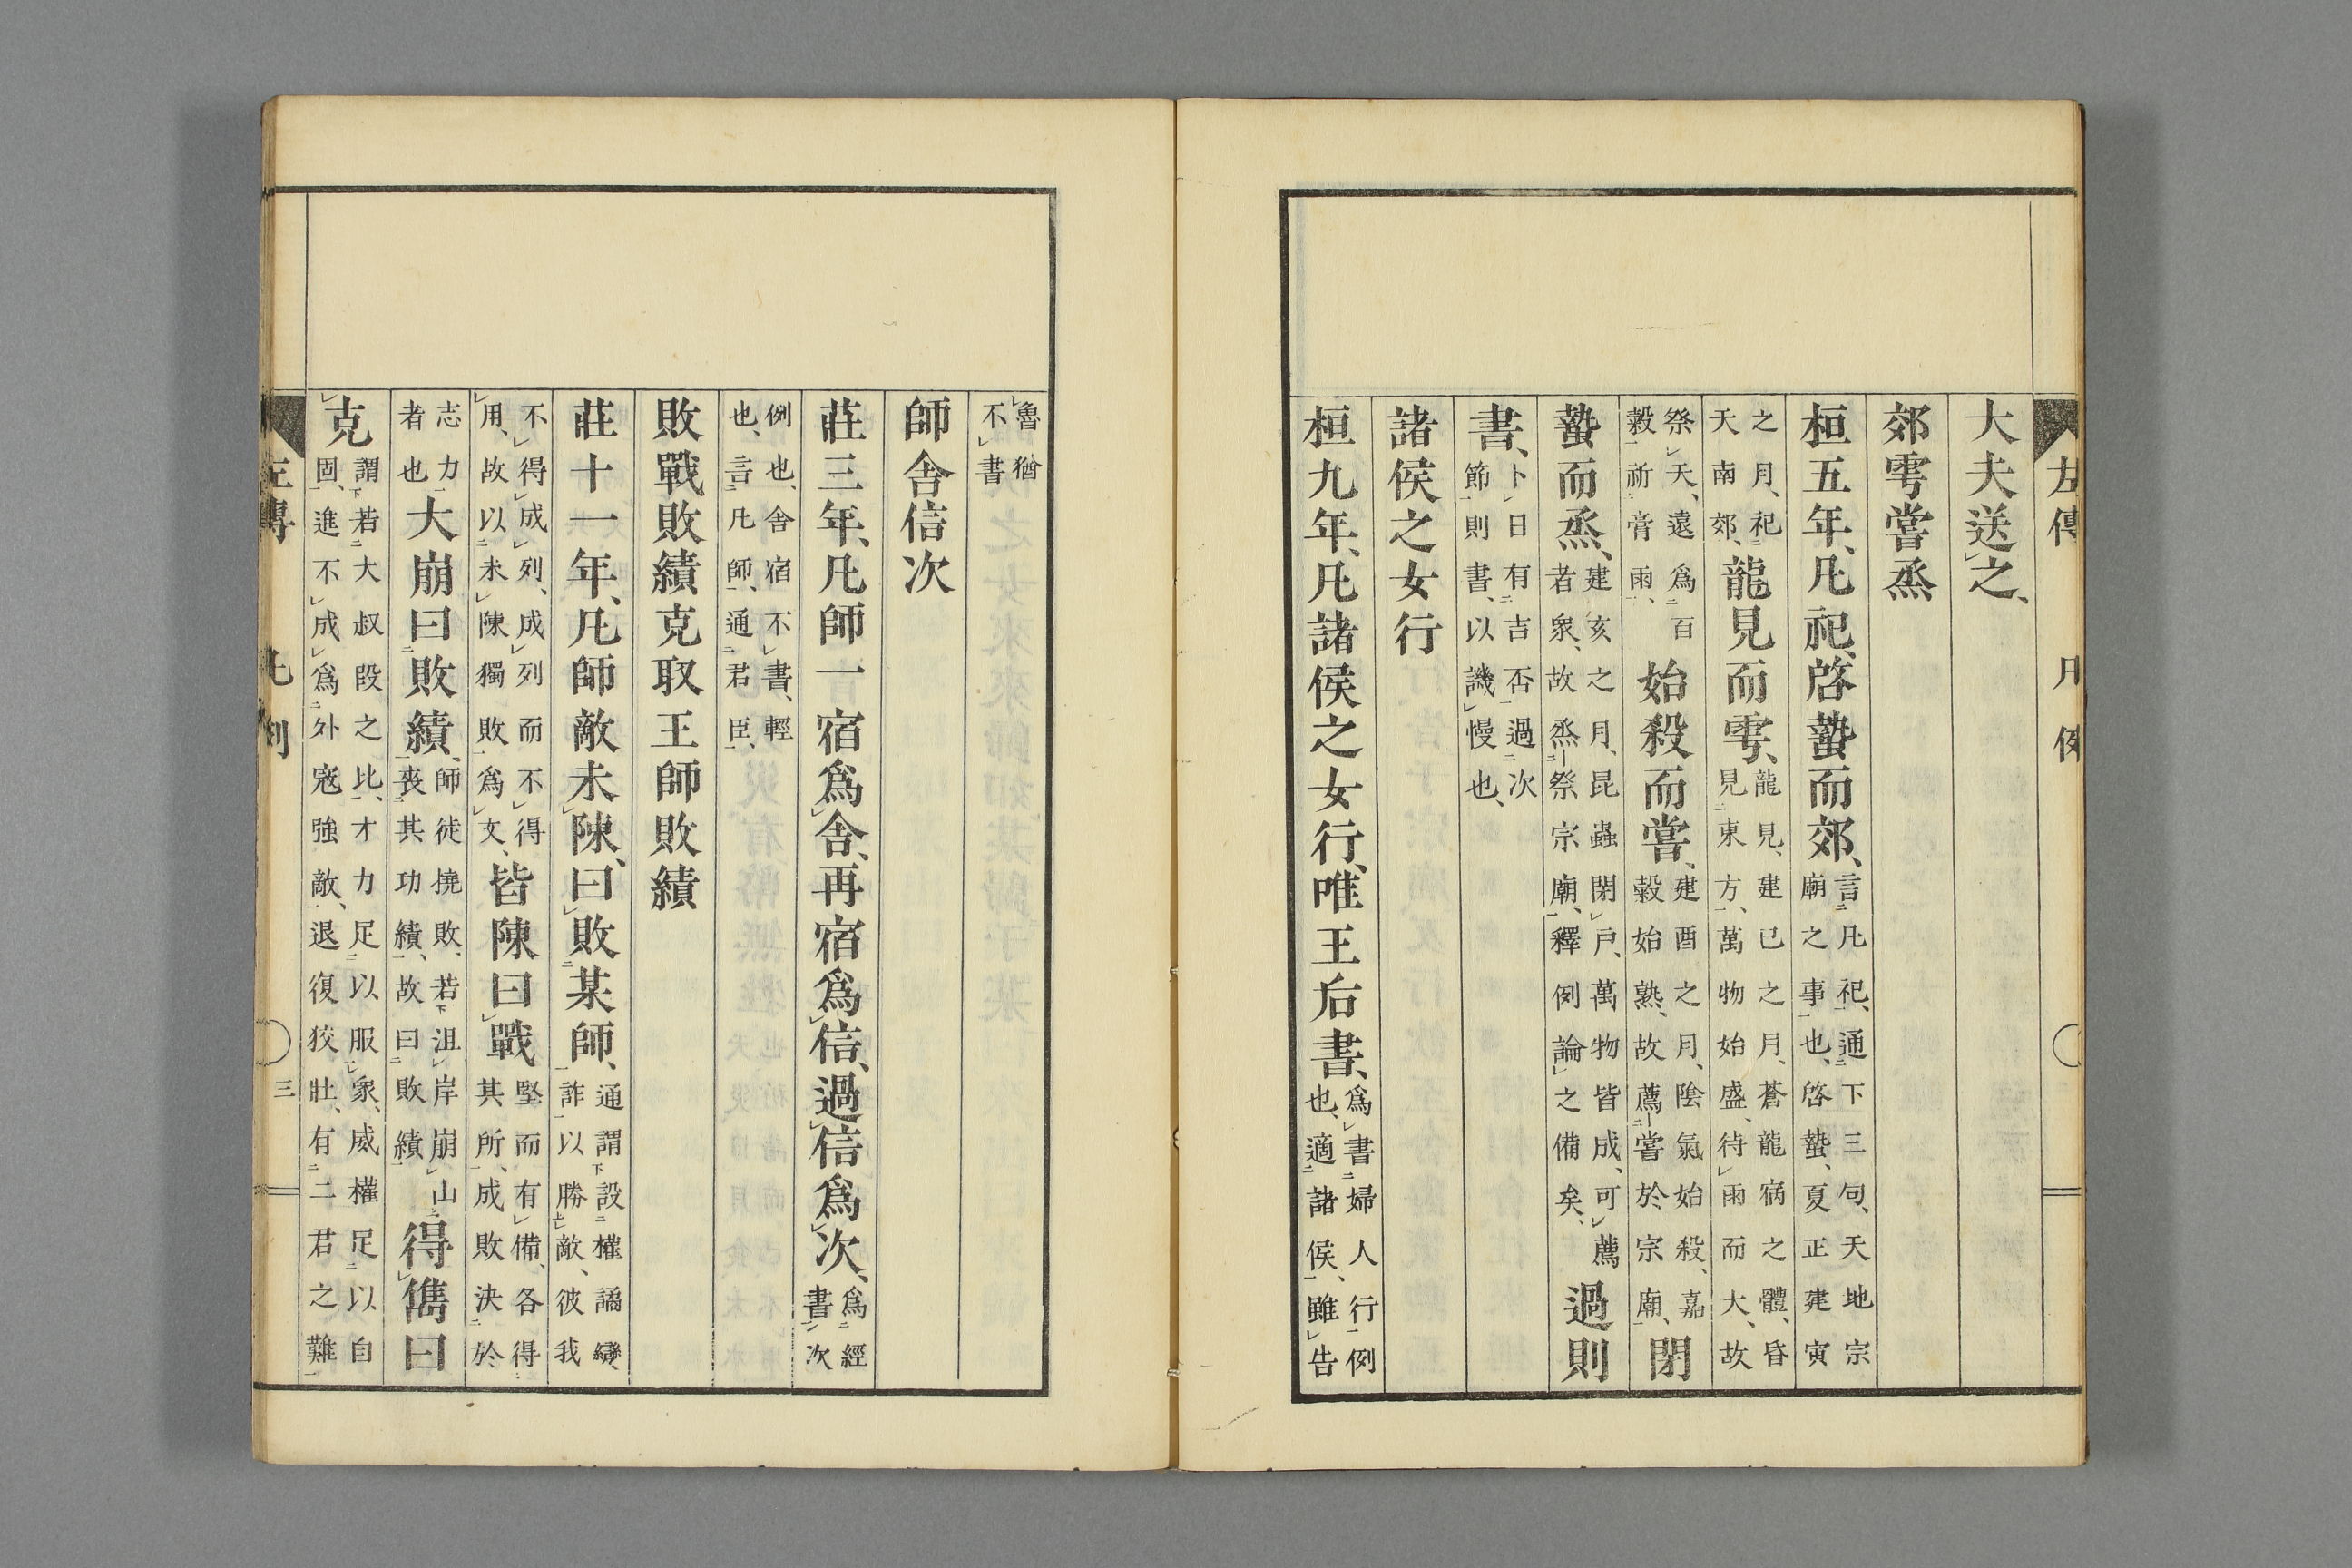 左傳 凡例
大夫送之、
郊雩嘗烝
桓五年、凡祀、啓蟄而郊、言凡祀、通下三句、天地宗廟之事也、啓蟄、夏正建寅
之月、祀天南郊、龍見而雩、龍見、建巳之月、蒼龍宿之體、昏見東方、萬物始盛、待雨而大、故
祭天、遠爲百穀祈膏雨、始殺而嘗、建酉之月、陰氣始殺、嘉穀始熟、故薦嘗於宗廟、閉
蟄而烝、建亥之月、昆蟲閉戸、萬物皆成、可薦者衆、故烝祭宗廟、釋例論之備矣、過則
書、卜日有吉否過次節則書、以譏慢也、
諸侯之女行
桓九年、凡諸侯之女行、唯王后書、爲書婦人行例也、適諸侯、雖告
魯猶不書
師舍信次
莊三年、凡師一宿爲舍、再宿爲信、過信爲次、爲經書次
例也、舍宿不書、輕也、言凡師、通君臣、
敗戰敗績克取王師敗績
莊十一年、凡師敵未陳、曰敗某師、通謂設權譎變詐以勝敵、彼我
不得成列、成列而不得用、故以未陳獨敗爲文、皆陳曰戰堅而有備、各得其所、成敗決於
志力者也大崩曰敗績、師徒撓敗、若沮岸崩山喪其功績、故曰敗績得儁曰
克謂若大叔段之比、才力足以服衆、威權足以自固、進不成爲外寇強敵、退復狡壯、有二君之難
左傳 凡例 三